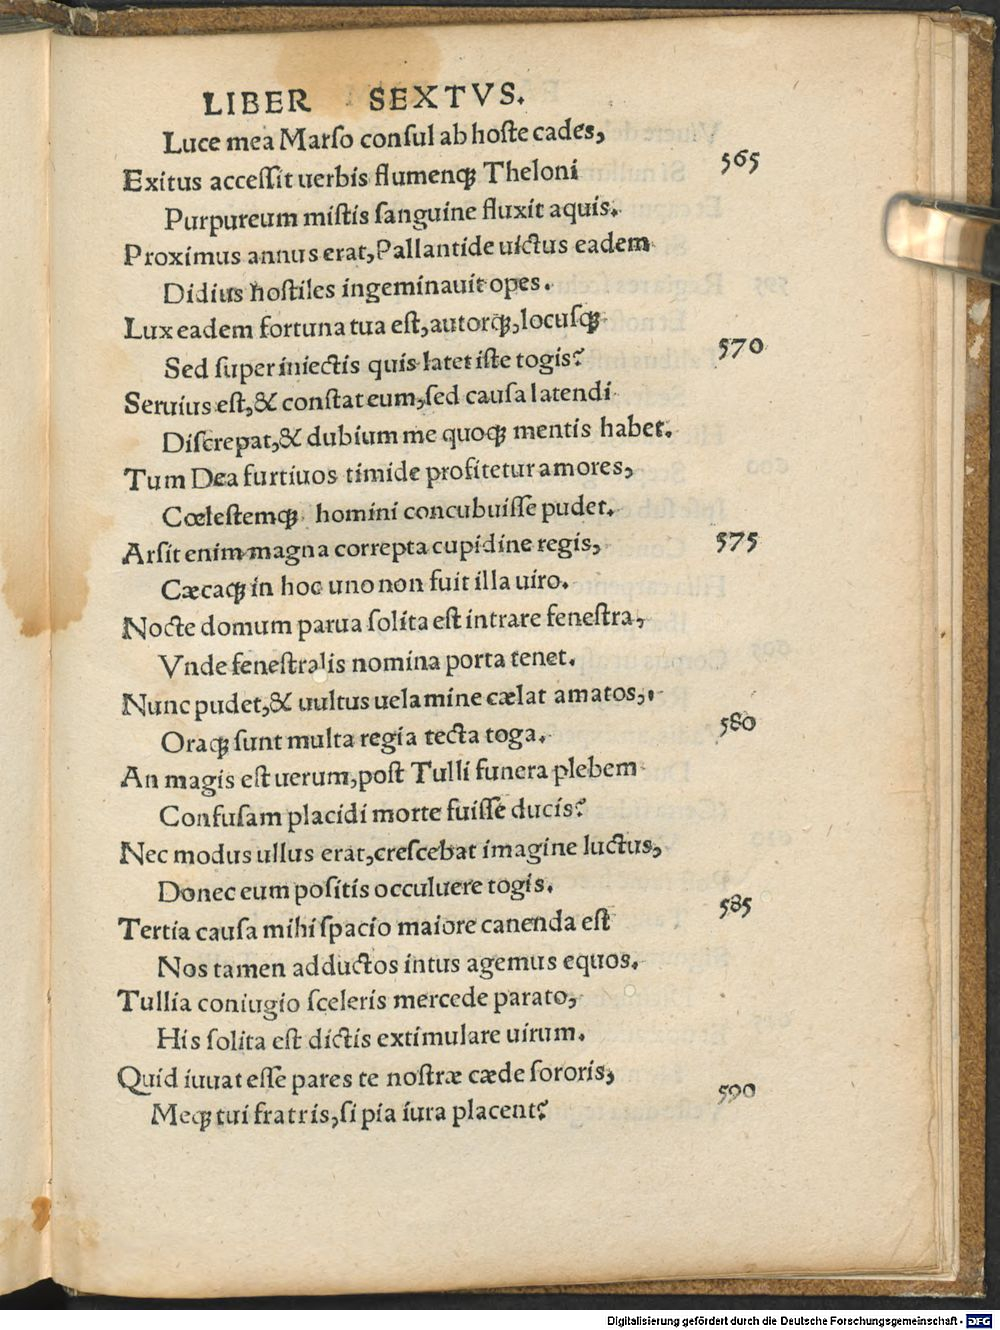 LIBER SEXTVS.
Luce mea Marſo conſul ab hoſte cades,
Exitus acceſſit uerbis flumenqꝫ Theloni 565
Purpureum miſtis ſanguine fluxit aquis.
Proximus annus erat, Pallantide uictus eadem
Didius hoſtiles ingeminauit opes.
Lux eadem fortuna tua eſt, autorqꝫ, locuſqꝫ
Sed ſuper iniectis quis latet iſte togis? 570
Seruius eſt, & conſtat eum, ſed cauſa latendi
Diſcrepat, & dubium me quoqꝫ mentis habet.
Tum Dea furtiuos timide profitetur amores,
Cœleſtemqꝫ homini concubuiſſe pudet.
Arſit enim magna correpta cupidine regis, 575
Cæcaqꝫ in hoc uno non fuit illa uiro.
Nocte domum parua ſolita eſt intrare feneſtra,
Vnde feneſtralis nomina porta tenet.
Nunc pudet, & uultus uelamine cælat amatos,
Oraqꝫ ſunt multa regia tecta toga. 580
An magis eſt uerum, poſt Tulli funera plebem
Confuſam placidi morte fuiſſe ducis?
Nec modus ullus erat, creſcebat imagine luctus,
Donec eum poſitis occuluere togis.
Tertia cauſa mihi ſpacio maiore canenda eſt 585
Nos tamen adductos intus agemus equos.
Tullia coniugio ſceleris mercede parato,
His ſolita eſt dictis extimulare uirum.
Quid iuuat eſſe pares te noſtræ cæde ſororis,
Meqꝫ tui fratris, ſi pia iura placent? 590
Digitalisierung gefördert durch die Deutsche Forschungsgemeinschaft - DFG